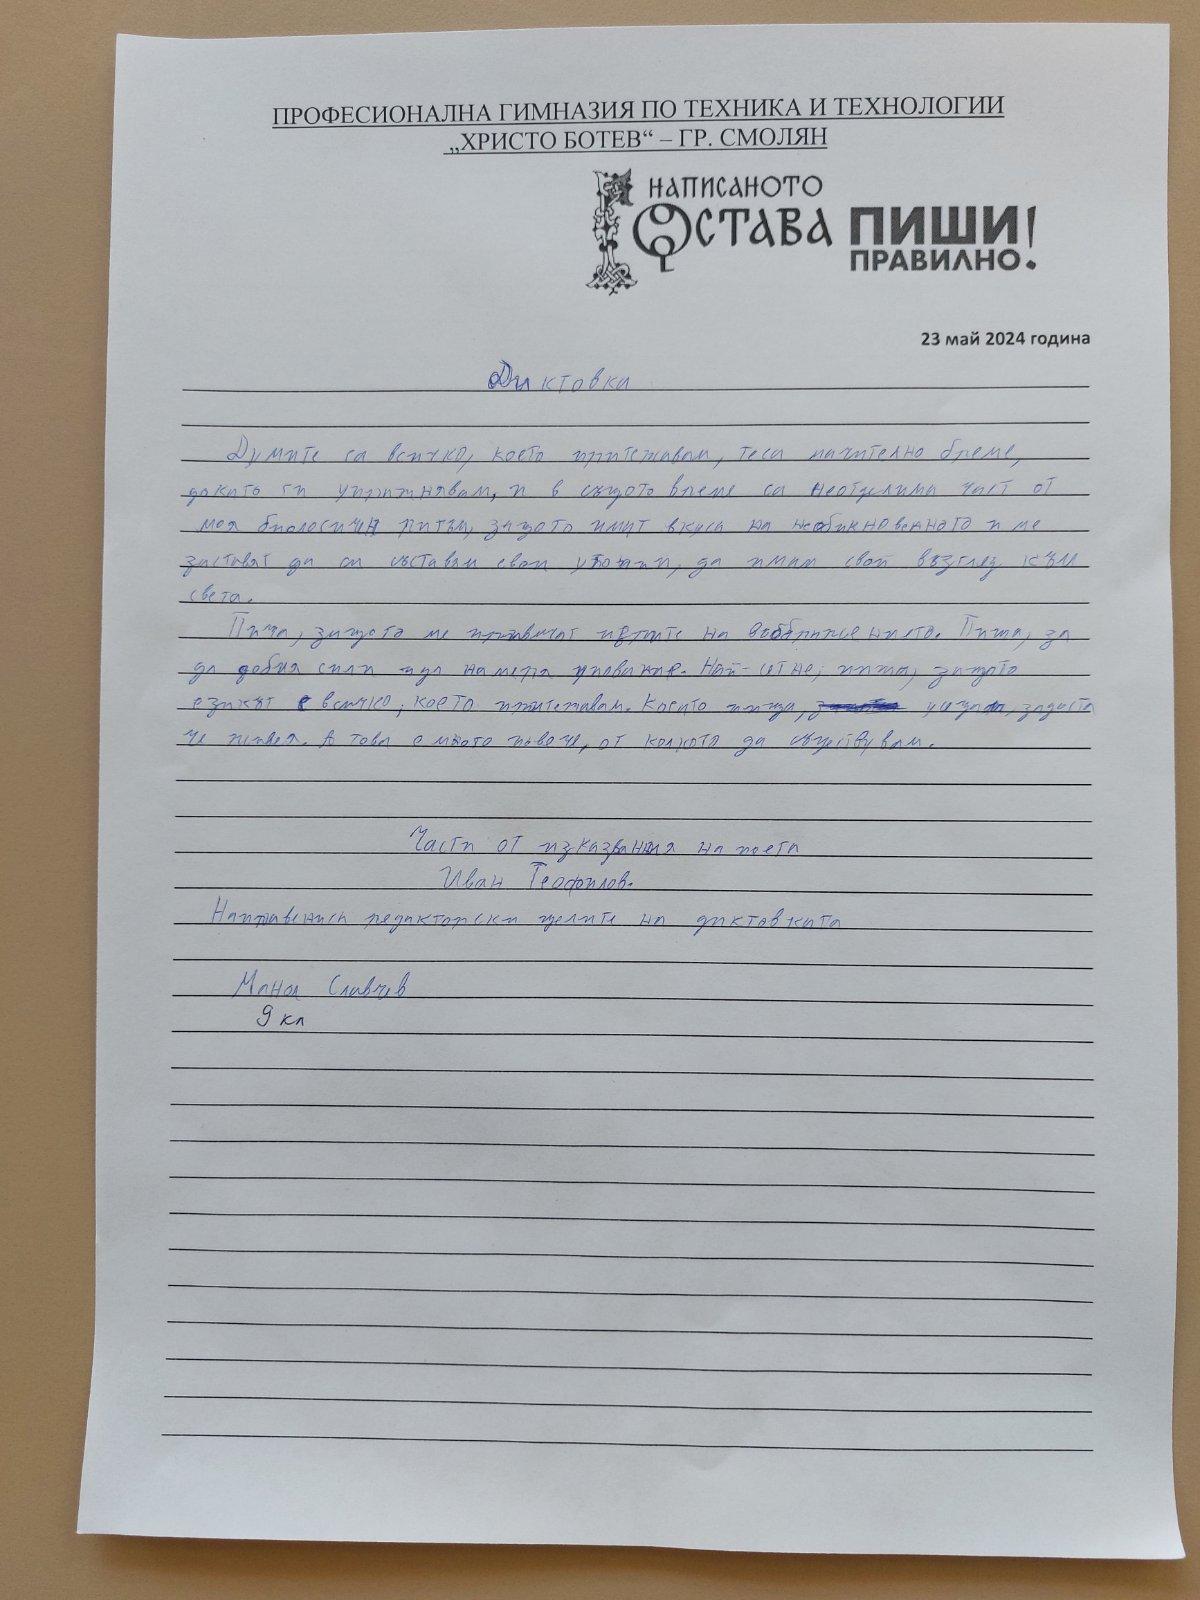 ПРОФЕСИОНАЛНА ГИМНАЗИЯ ПО ТЕХНИКА И ТЕХНОЛОГИИ
„ХРИСТО БОТЕВ“ – ГР. СМОЛЯН
НАПИСАНОТО
ОСТАВА ПИШИ!
ПРАВИЛНО!
23 май 2024 година
Диктовка
Думите са всичко, което притежавам, теса мъчително бреме,
докато ги упражнявам, и в същото време са неотделима част от
моя биологичен ритъм, защото имат вкуса на необикновеното и ме
заставят да си съставям свои утопии, да имам свой възглед към
света.
Пиша, защото ме привличат игрите на въображението. Пиша, за
да добия сили и да намеря упование. Най-сетне, пиша, защото
езикът е всичко, което притежавам. Когато пиша, усещам,
че живея. А това е много повече, от колкото да съществувам.
Части от изказвания на поета
Иван Теофилов.
Направениса редакторски за целите на диктовката
Манол Славчев
9 кл